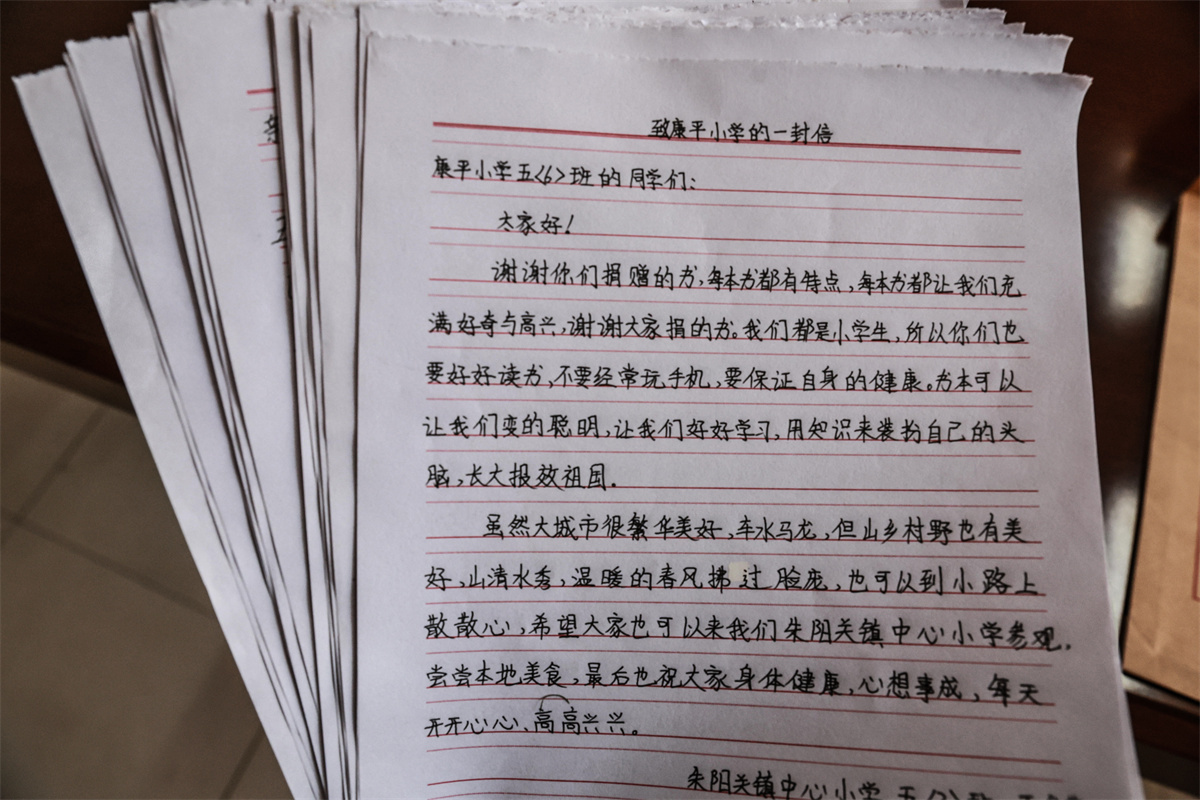 致康平小学的一封信
康平小学五<6>班的同学们:
大家好!
谢谢你们捐赠的书,每本书都有特点,每本书都让我们充
满好奇与高兴,谢谢大家捐的书。我们都是小学生,所以你们也
要好好读书,不要经常玩手机,要保证自身的健康。书本可以
让我们变的聪明,让我们好好学习,用知识来装扮自己的头
脑,长大报效祖国.
虽然大城市很繁华美好,车水马龙,但山乡村野也有美
好,山清水秀,温暖的春风拂过脸庞,也可以到小路上
散散心,希望大家也可以来我们朱阳关镇中心小学参观,
尝尝本地美食,最后也祝大家身体健康,心想事成,每天
开开心心、高高兴兴。
朱阳关镇中心小学